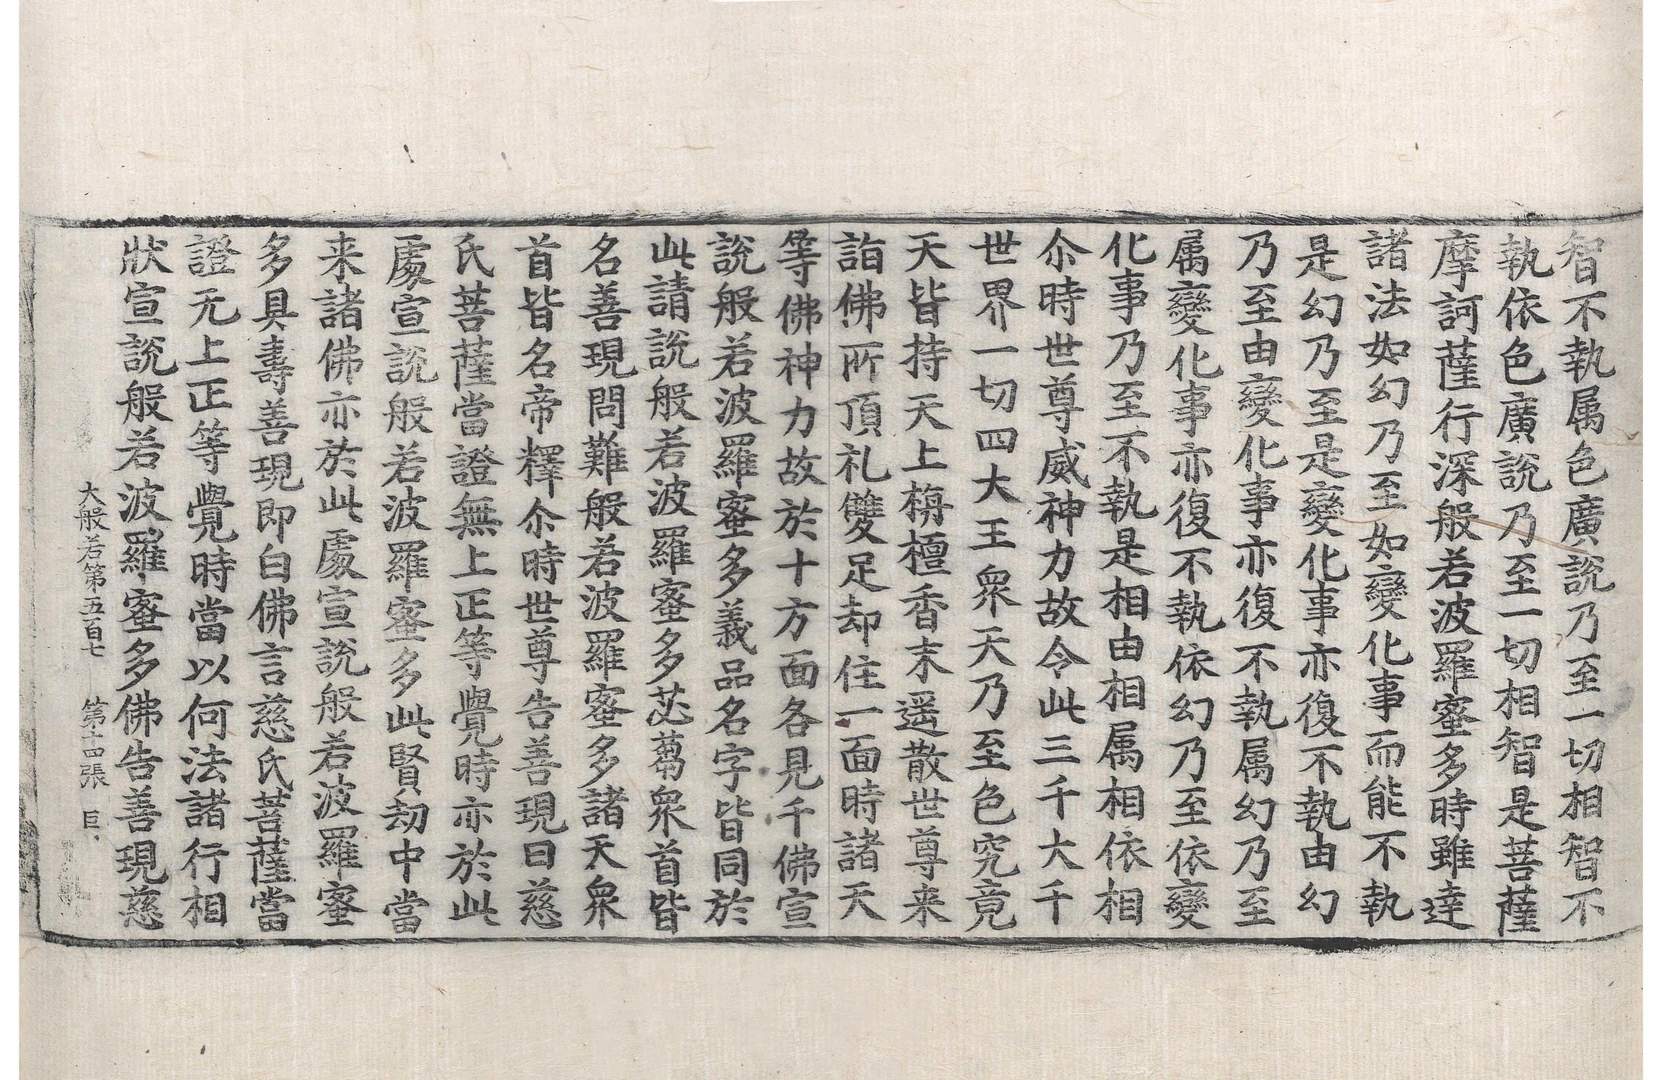 智不執属色廣說乃至一切相智不
執依色廣說乃至一切相智是菩薩
摩訶薩行深般若波羅蜜多時雖達
諸法如幻乃至如變化事而能不執
是幻乃至是變化事亦復不執由幻
乃至由變化事亦復不執属幻乃至
属變化事亦復不執依幻乃至依變
化事乃至不執是相由相属相依相
尒時世尊威神力故令此三千大千
世界一切四大王衆天乃至色究竟
天皆持天上栴檀香末遥散世尊来
詣佛所頂礼雙足却住一面時諸天
等佛神力故於十方面各見千佛宣
說般若波羅蜜多義品名字皆同於
此請說般若波羅蜜多苾蒭衆首皆
名善現問難般若波羅蜜多諸天衆
首皆名帝釋尒時世尊告善現曰慈
氏菩薩當證無上正等覺時亦於此
處宣說般若波羅蜜多此賢劫中當
来諸佛亦於此處宣說般若波羅蜜
多具壽善現即白佛言慈氏菩薩當
證无上正等覺時當以何法諸行相
狀宣說般若波羅蜜多佛告善現慈
大般若第五百七 第十四張 巨